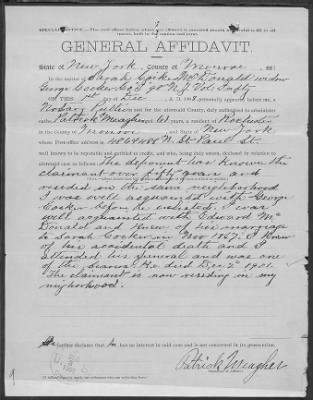 GENERAL AFFIDAVIT.
State of New York, County of Monroe, ss:
In the matter of Sarah Cocker McDonald widow
George Cocker Co I 90 N.Y. Vol Infty
ON THIS 7th day of Dec A. D. 1908, personally appeared before me, a
Notary Public in and for the aforesaid County, duly authorized to administer
oaths, Patrick Meagher aged 61 years, a resident of Rochester
in the County of Monroe and State of New York
whose Post-office address is St Paul St.
well known to be reputable and entitled to credit, and who, being duly sworn, declared in relation to
aforesaid case as follows: The deponent has known the
claimant over fifty years and
resided in the same neighborhood
I was well acquainted with George
Cocker when he enlisted, I was
well acquainted with Edward Mc
Donald and knew of his marriage
to Sarah Cocker in Nov 1867. I knew
of his accidental death and I
attended his funeral and was one
of the bearers. He died Dec 2nd 1901.
The claimant is now residing in my
nighborhood.
He further declares that he has no interest in said case and is not concerned in its prosecution.
Patrick Meagher